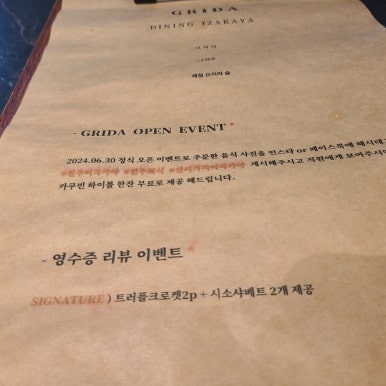 GRIDA
DINING IZAKAYA
제철 요리와 술
- GRIDA OPEN EVENT *
2024.06.30 정식 오픈 이벤트로 주문한 음식 사진을 인스타 or 페이스북에 해시태그
게시해주시고 직원에게 보여주시
카쿠빈 하이볼 한잔 무료로 제공 해드립니다.
- 영수증 리뷰 이벤트 *
SIGNATURE ) 트러플크로켓2p + 시소샤베트 2개 제공